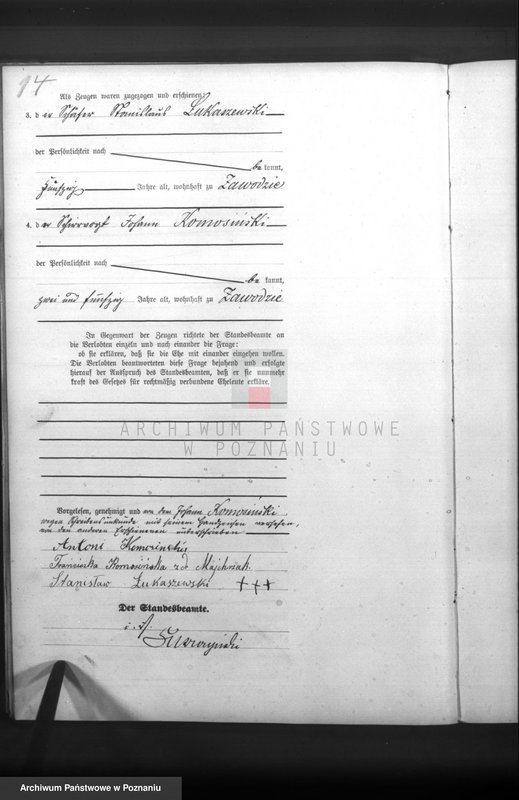 94
Als Zeugen waren zugezogen und erschienen:
3. der Schäfer Stanislaus Łukaszewski
der Persönlichkeit nach
be kannt,
fünfzig Jahre alt, wohnhaft zu Zawodzie
4. der Schirrvogt Johann Komosiński
der Persönlichkeit nach
be kannt,
zwei und fünfzig Jahre alt, wohnhaft zu Zawodzie
In Gegenwart der Zeugen richtete der Standesbeamte an
die Verlobten einzeln und nach einander die Frage:
ob sie erklären, daß sie die Ehe mit einander eingehen wollen.
Die Verlobten beantworteten diese Frage bejahend und erfolgte
hierauf der Ausspruch des Standesbeamten, daß er sie nunmehr
kraft des Gesetzes für rechtmäßig verbundene Eheleute erkläre.
ARCHIWUM PAŃSTWOWE
W POZNANIU
Vorgelesen, genehmigt und von dem Johann Komosiński
wegen Schreibensunkunde mit seinem Handzeichen versehen,
von den anderen Erschienenen unterschrieben
Antoni Komosiński
Franciszka Komosińska z d. Majchrzak
Stanisław Łukaszewski +++
Der Standesbeamte.
i. V.
Archiwum Państwowe w Poznaniu